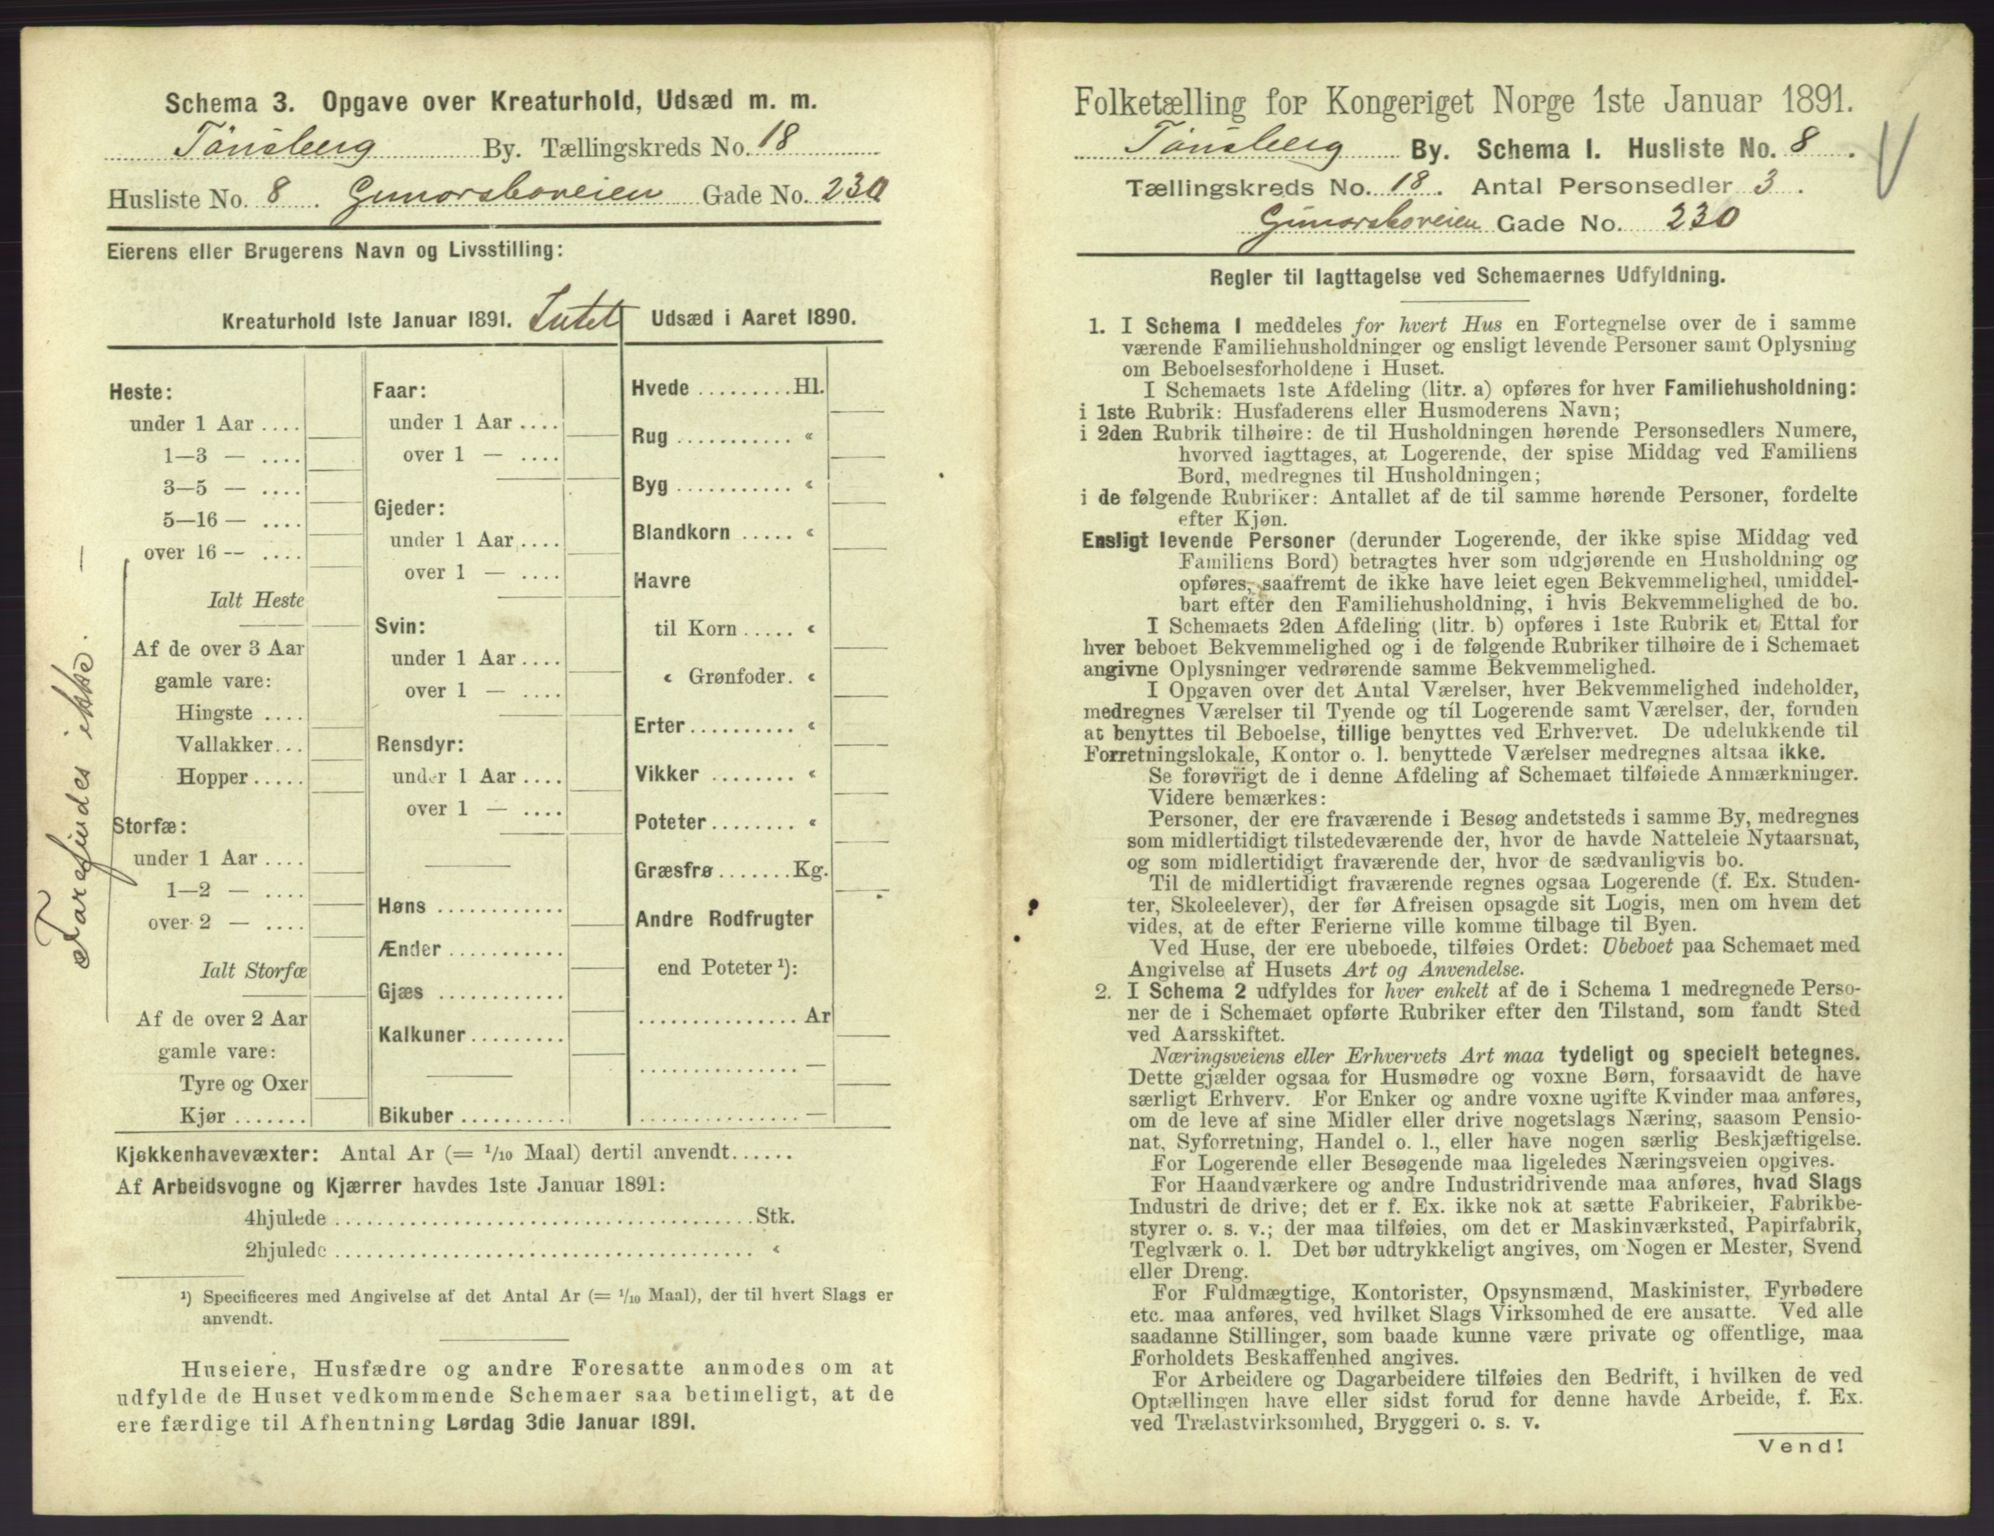 Schema 3. Opgave over Kreaturhold, Udsæd m. m.
Tönsberg By. Tællingskreds No. 18
Husliste No. 8. Gunorsboveien Gade No. 230
Eierens eller Brugerens Navn og Livsstilling:
Kreaturhold 1ste Januar 1891. Intet
Forefindes ikke. —
Heste:
under 1 Aar ....
1—3 — ....
3—5 — ....
5—16 — ....
over 16 — ....
Ialt Heste
Af de over 3 Aar
gamle vare:
Hingste ....
Vallakker...
Hopper.....
Storfæ:
under 1 Aar ....
1—2 — ....
over 2 — ....
Ialt Storfæ
Af de over 2 Aar
gamle vare:
Tyre og Oxer
Kjør.......
Faar:
under 1 Aar ....
over 1 — ....
Gjeder:
under 1 Aar....
over 1 — ....
Svin:
under 1 Aar....
over 1 — ....
Rensdyr:
under 1 Aar....
over 1 — ....
Høns ............
Ænder ...........
Gjæs ............
Kalkuner.........
Bikuber ..........
Udsæd i Aaret 1890.
Hvede .........Hl.
Rug ........... «
Byg ........... «
Blandkorn ..... «
Havre
til Korn..... «
« Grønfoder. «
Erter.......... «
Vikker ........ «
Poteter........ «
Græsfrø.......Kg.
Andre Rodfrugter
end Poteter ¹):
...............Ar
............... —
............... —
Kjøkkenhavevæxter: Antal Ar (= 1/10 Maal) dertil anvendt......
Af Arbeidsvogne og Kjærrer havdes 1ste Januar 1891:
4hjulede ........................................Stk.
2hjulede ........................................ «
¹) Specificeres med Angivelse af det Antal Ar (= 1/10 Maal), der til hvert Slags er
anvendt.
Huseiere, Husfædre og andre Foresatte anmodes om at
udfylde de Huset vedkommende Schemaer saa betimeligt, at de
ere færdige til Afhentning Lørdag 3die Januar 1891.
Folketælling for Kongeriget Norge 1ste Januar 1891.
Tönsberg By. Schema 1. Husliste No. 8.
Tællingskreds No. 18. Antal Personsedler 3.
Gunorsboveien Gade No. 230
Regler til Iagttagelse ved Schemaernes Udfyldning.
1. I Schema 1 meddeles for hvert Hus en Fortegnelse over de i samme
værende Familiehusholdninger og ensligt levende Personer samt Oplysning
om Beboelsesforholdene i Huset.
I Schemaets 1ste Afdeling (litr. a) opføres for hver Familiehusholdning:
i 1ste Rubrik: Husfaderens eller Husmoderens Navn;
i 2den Rubrik tilhøire: de til Husholdningen hørende Personsedlers Numere,
hvorved iagttages, at Logerende, der spise Middag ved Familiens
Bord, medregnes til Husholdningen;
i de følgende Rubriker: Antallet af de til samme hørende Personer, fordelte
efter Kjøn.
Ensligt levende Personer (derunder Logerende, der ikke spise Middag ved
Familiens Bord) betragtes hver som udgjørende en Husholdning og
opføres, saafremt de ikke have leiet egen Bekvemmelighed, umiddel-
bart efter den Familiehusholdning, i hvis Bekvemmelighed de bo.
I Schemaets 2den Afdeling (litr. b) opføres i 1ste Rubrik et Ettal for
hver beboet Bekvemmelighed og i de følgende Rubriker tilhøire de i Schemaet
angivne Oplysninger vedrørende samme Bekvemmelighed.
I Opgaven over det Antal Værelser, hver Bekvemmelighed indeholder,
medregnes Værelser til Tyende og til Logerende samt Værelser, der, foruden
at benyttes til Beboelse, tillige benyttes ved Erhvervet. De udelukkende til
Forretningslokale, Kontor o. l. benyttede Værelser medregnes altsaa ikke.
Se forøvrigt de i denne Afdeling af Schemaet tilføiede Anmærkninger.
Videre bemærkes:
Personer, der ere fraværende i Besøg andetsteds i samme By, medregnes
som midlertidigt tilstedeværende der, hvor de havde Natteleie Nytaarsnat,
og som midlertidigt fraværende der, hvor de sædvanligvis bo.
Til de midlertidigt fraværende regnes ogsaa Logerende (f. Ex. Studen-
ter, Skoleelever), der før Afreisen opsagde sit Logis, men om hvem det
vides, at de efter Ferierne ville komme tilbage til Byen.
Ved Huse, der ere ubeboede, tilføies Ordet: Ubeboet paa Schemaet med
Angivelse af Husets Art og Anvendelse.
2. I Schema 2 udfyldes for hver enkelt af de i Schema 1 medregnede Perso-
ner de i Schemaet opførte Rubriker efter den Tilstand, som fandt Sted
ved Aarsskiftet.
Næringsveiens eller Erhvervets Art maa tydeligt og specielt betegnes.
Dette gjælder ogsaa for Husmødre og voxne Børn, forsaavidt de have
særligt Erhverv. For Enker og andre voxne ugifte Kvinder maa anføres,
om de leve af sine Midler eller drive nogetslags Næring, saasom Pensio-
nat, Syforretning, Handel o. l., eller have nogen særlig Beskjæftigelse.
For Logerende eller Besøgende maa ligeledes Næringsveien opgives.
For Haandværkere og andre Industridrivende maa anføres, hvad Slags
Industri de drive; det er f. Ex. ikke nok at sætte Fabrikeier, Fabrikbe-
styrer o. s. v.; der maa tilføies, om det er Maskinværksted, Papirfabrik,
Teglværk o. l. Det bør udtrykkeligt angives, om Nogen er Mester, Svend
eller Dreng.
For Fuldmægtige, Kontorister, Opsynsmænd, Maskinister, Fyrbødere
etc. maa anføres, ved hvilket Slags Virksomhed de ere ansatte. Ved alle
saadanne Stillinger, som baade kunne være private og offentlige, maa
Forholdets Beskaffenhed angives.
For Arbeidere og Dagarbeidere tilføies den Bedrift, i hvilken de ved
Optællingen have eller sidst forud for denne havde Arbeide, f. Ex.
ved Trælastvirksomhed, Bryggeri o. s. v.
Vend!